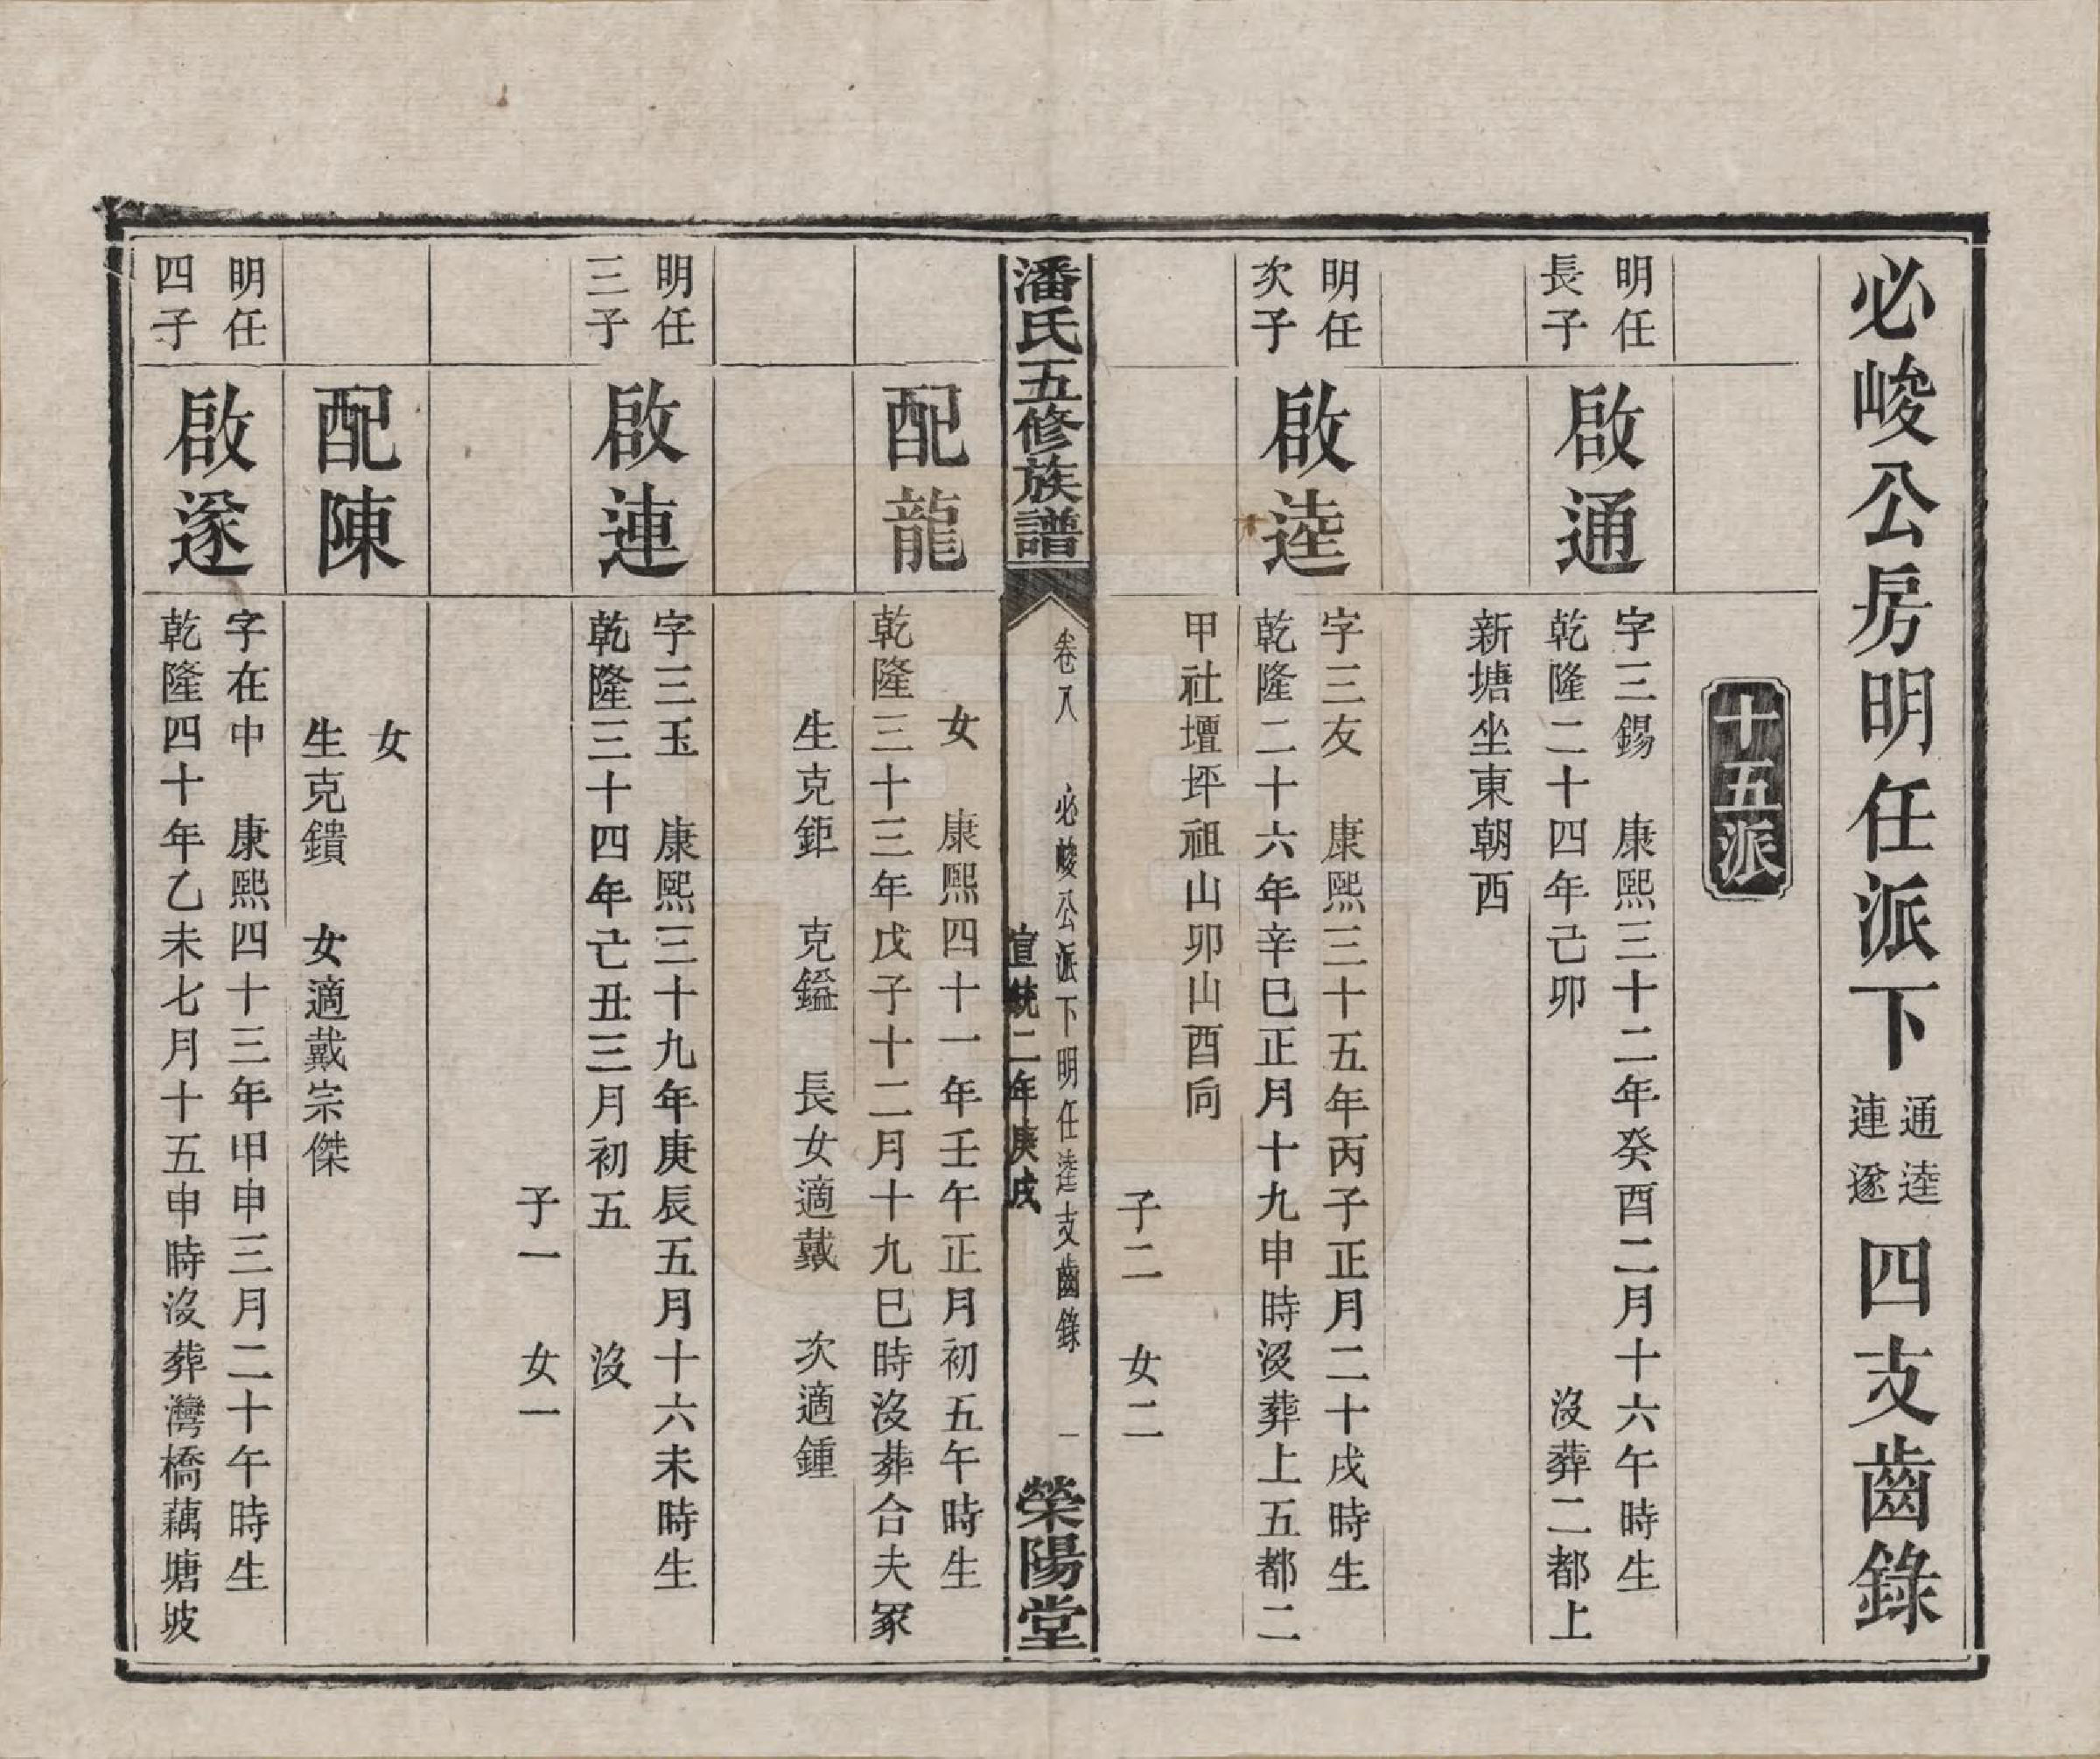 必峻公房明任派下通逵連遂四支齒錄
十五派
明任長子
啟通
字三錫 康熙三十二年癸酉二月十六午時生
乾隆二十四年己卯 沒葬二都上
新塘坐東朝西
明任次子
啟逵
字三友 康熙三十五年丙子正月二十戌時生
乾隆二十六年辛巳正月十九申時沒葬上五都二
甲社壇坪祖山卯山酉向
子二 女二
潘氏五修族譜
卷八 必峻公派下明任逵支齒錄 一
宣統二年庚戌
榮陽堂
配龍
女 康熙四十一年壬午正月初五午時生
乾隆三十三年戊子十二月十九巳時沒葬合夫冢
生克鉅 克鎰 長女適戴 次適鍾
明任三子
啟連
字三玉 康熙三十九年庚辰五月十六未時生
乾隆三十四年亡丑三月初五 沒
子一 女一
配陳
女
生克鐀 女適戴宗傑
明任四子
啟遂
字在中 康熙四十三年甲申三月二十午時生
乾隆四十年乙未七月十五申時沒葬灣橋藕塘坡